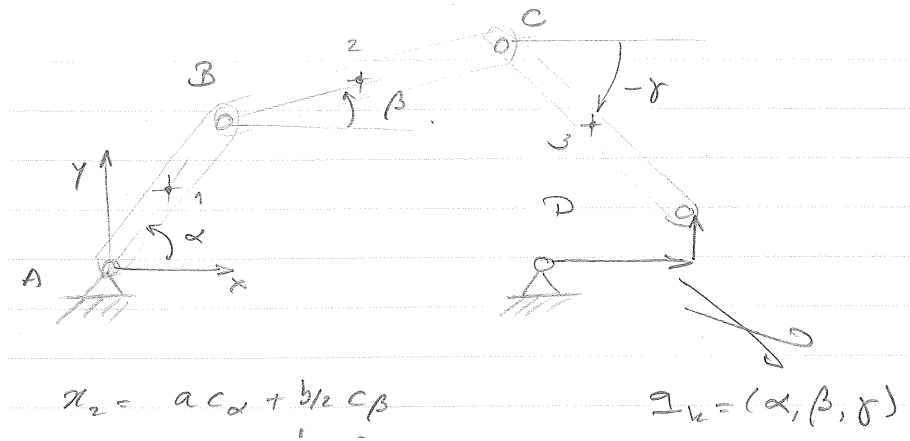 C
2
B
-γ
β
3
y
1
D
α
A
x
x₂ = a cα + b/2 cβ
qₖ = (α, β, γ)